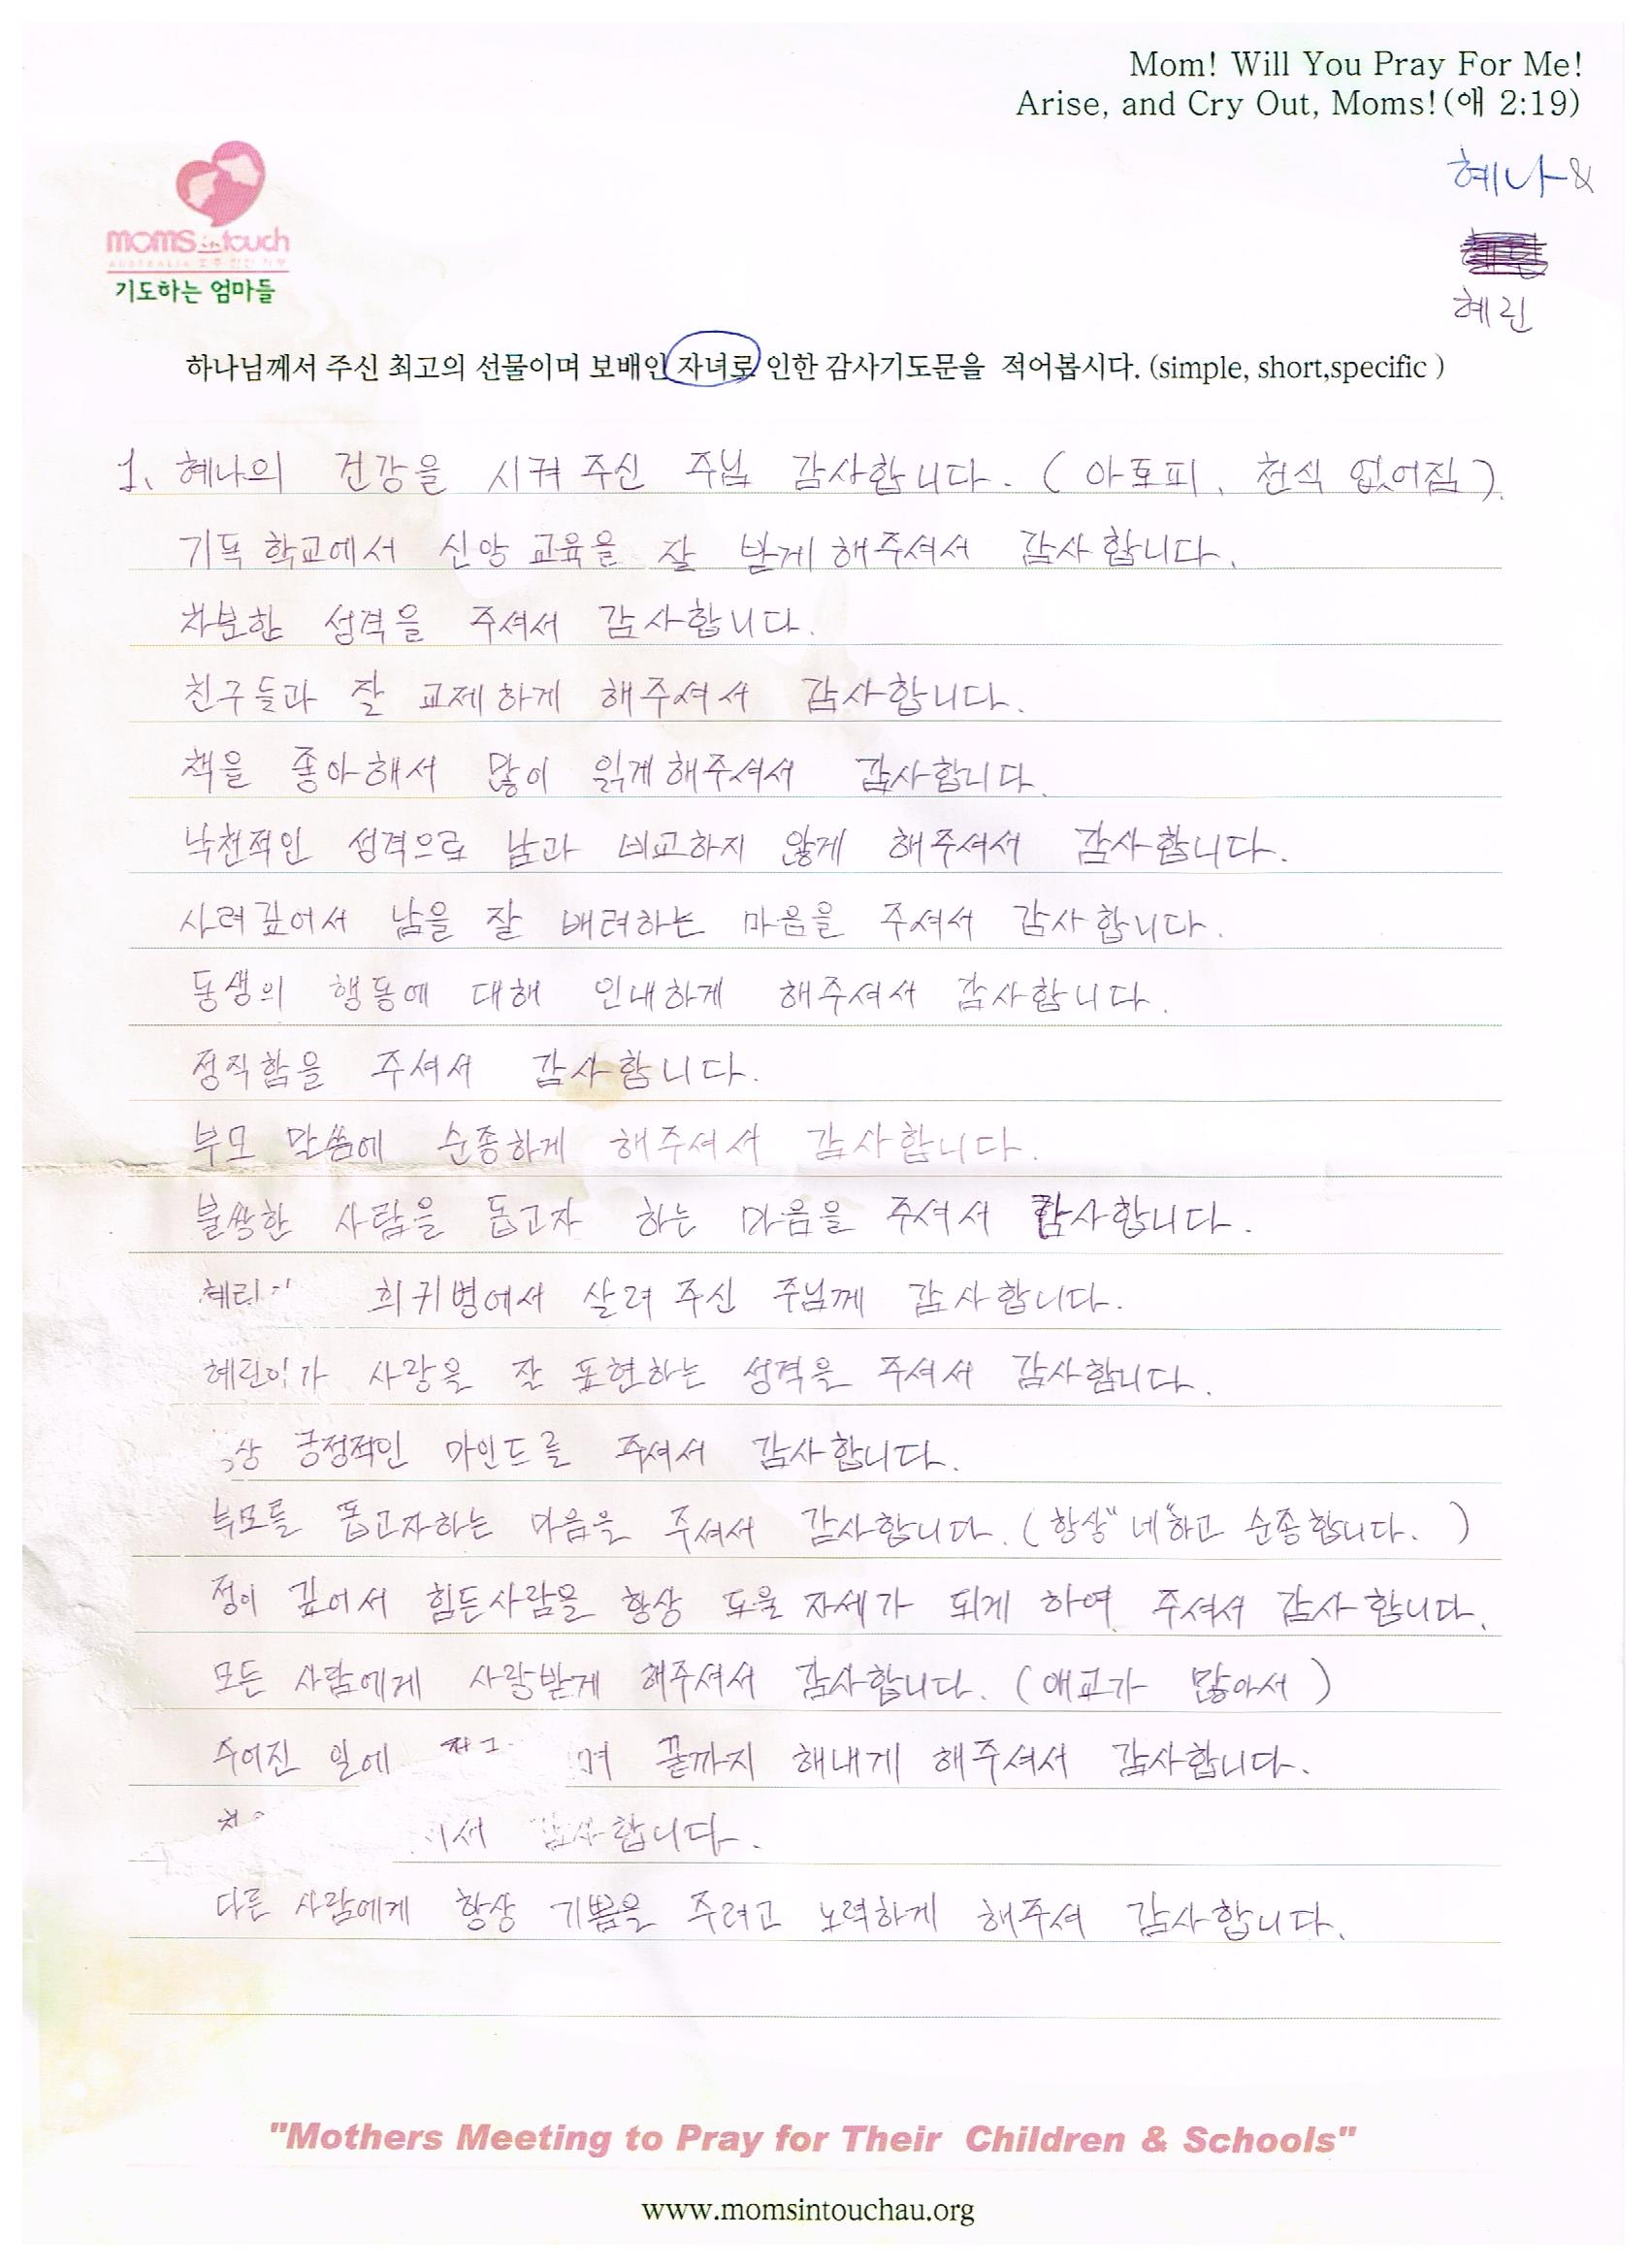 Mom! Will You Pray For Me!
Arise, and Cry Out, Moms!(애 2:19)
혜나 &
혜린
moms in touch
AUSTRALIA 호주 한인 지부
기도하는 엄마들
하나님께서 주신 최고의 선물이며 보배인 자녀로 인한 감사기도문을 적어봅시다. (simple, short,specific )
1. 혜나의 건강을 시켜 주신 주님 감사합니다. ( 아토피, 천식 없어짐 ).
기독 학교에서 신앙 교육을 잘 받게 해주셔서 감사합니다.
차분한 성격을 주셔서 감사합니다.
친구들과 잘 교제하게 해주셔서 감사합니다.
책을 좋아해서 많이 읽게 해주셔서 감사합니다.
낙천적인 성격으로 남과 비교하지 않게 해주셔서 감사합니다.
사려깊어서 남을 잘 배려하는 마음을 주셔서 감사합니다.
동생의 행동에 대해 인내하게 해주셔서 감사합니다.
정직함을 주셔서 감사합니다.
부모 말씀에 순종하게 해주셔서 감사합니다.
불쌍한 사람을 돕고자 하는 마음을 주셔서 감사합니다.
희귀병에서 살려 주신 주님께 감사합니다.
혜린이가 사랑을 잘 표현하는 성격을 주셔서 감사합니다.
상 긍정적인 마인드를 주셔서 감사합니다.
부모를 돕고자하는 마음을 주셔서 감사합니다. ( 항상 "네"하고 순종합니다. )
정이 깊어서 힘든사람을 항상 도울 자세가 되게 하여 주셔서 감사합니다.
모든 사람에게 사랑받게 해주셔서 감사합니다. ( 애교가 많아서 )
주어진 일에 며 끝까지 해내게 해주셔서 감사합니다.
서 감사합니다.
다른 사람에게 항상 기쁨을 주려고 노력하게 해주셔 감사합니다.
"Mothers Meeting to Pray for Their Children & Schools"
www.momsintouchau.org